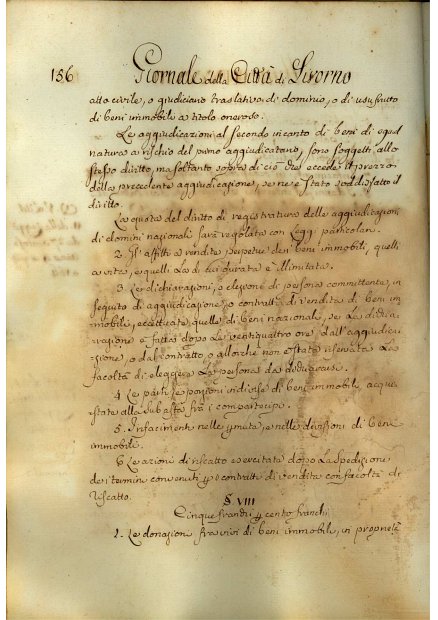 156 Giornale della Città di Livorno
atto civile, o giudiciario traslativo di dominio, o di usufrutto
di beni immobili a titolo oneroso.
Le aggiudicazioni al secondo incanto di beni di egual
natura a rischio del primo aggiudicatario, sono soggetti allo
stesso diritto, ma soltanto sopra di ciò che eccede il prezzo
della precedente aggiudicazione, se ne è stato soddisfatto il
diritto.
La quota del diritto di registratura delle aggiudicazioni
di domini nazionali sarà regolata con Leggi particolari.
2. Gl'affitti a rendita perpetua dei beni immobili, quelli
a vita, e quelli la di cui durata è illimitata.
3. Le dichiarazioni, o elezioni di persona committente, in
seguito di aggiudicazione, o contratti di vendita di beni im-
mobili, eccettuate quelle di beni nazionali, se la dichia-
razione è fatta dopo le ventiquattro ore dall'aggiudica-
zione, o dal contratto, o allorchè non è stata riservata la
facoltà di eleggere la persona da dichiararsi.
4. Le parti, e porzioni indivise di beni immobili acqui-
state alla subasta frà i compartecipi.
5. I rifacimenti nelle permute, e nelle divisioni di beni
immobili.
6. Le azioni di riscatto esercitate dopo la spedizione
dei termini convenuti per i contratti di vendita con facoltà di
riscatto.
§ VIII
Cinque franchi per cento franchi
1. Le donazioni fra vivi di beni immobili, in proprietà